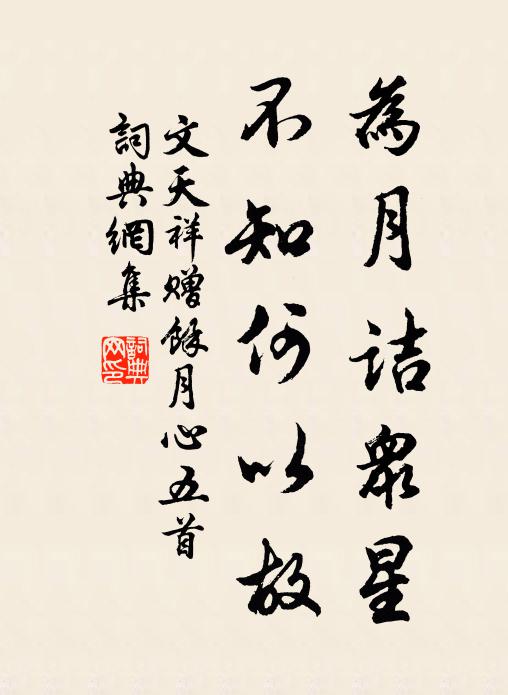 為月詰眾星
不知何以故
文天祥贈餘月心五首
詞典網集
詞典網印